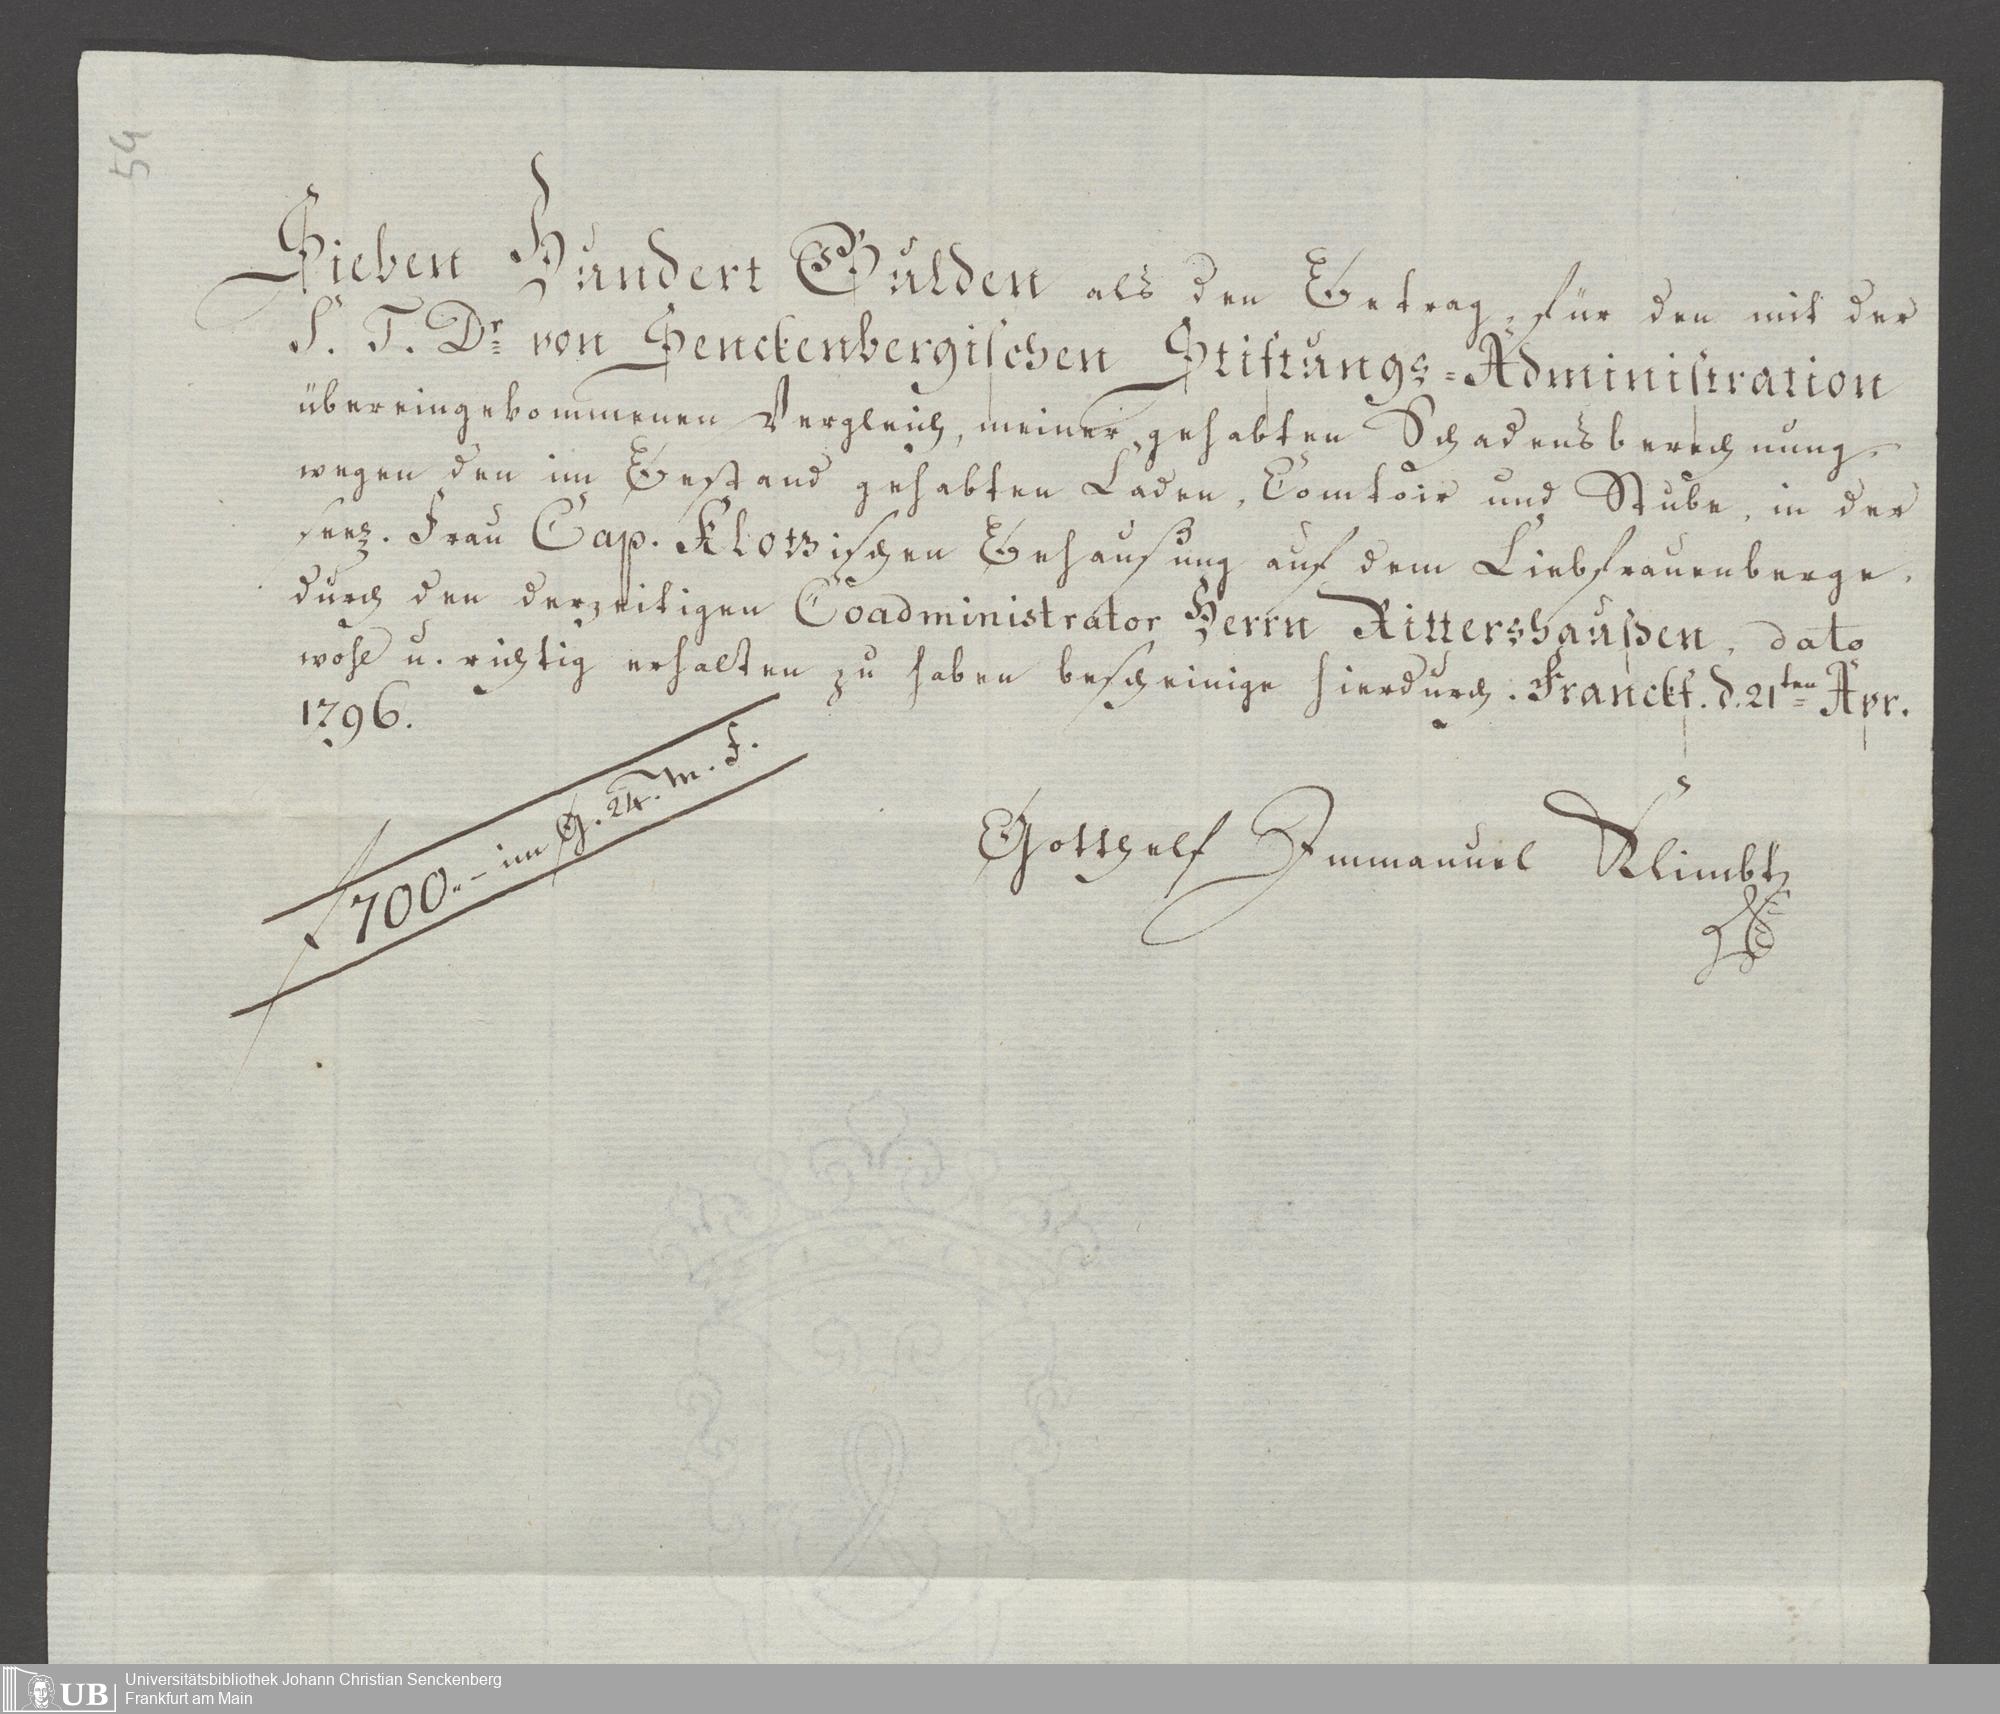 54
Sieben Hundert Gulden als den Betrag, für den mit der
S. T. Dr. von Senckenbergischen Stiftungs-Administration
übereingekommenen Vergleich, meiner gehabten Schadensberechnung
wegen den im Bestand gehabten Laden, Comtoir und Stube, in der
Frau Cap. Klotzischen Behausung auf dem Liebfrauenberge,
durch den derzeitigen Coadministrator Herrn Rittershaußen, dato
wohl u. richtig erhalten zu haben bescheinige hierdurch. Franckf. d. 21ten Apr.
1796.
f 700.- im fl. 24. M. F.
Gotthelf Immanuel Klimbt
UB Universitätsbibliothek Johann Christian Senckenberg
Frankfurt am Main